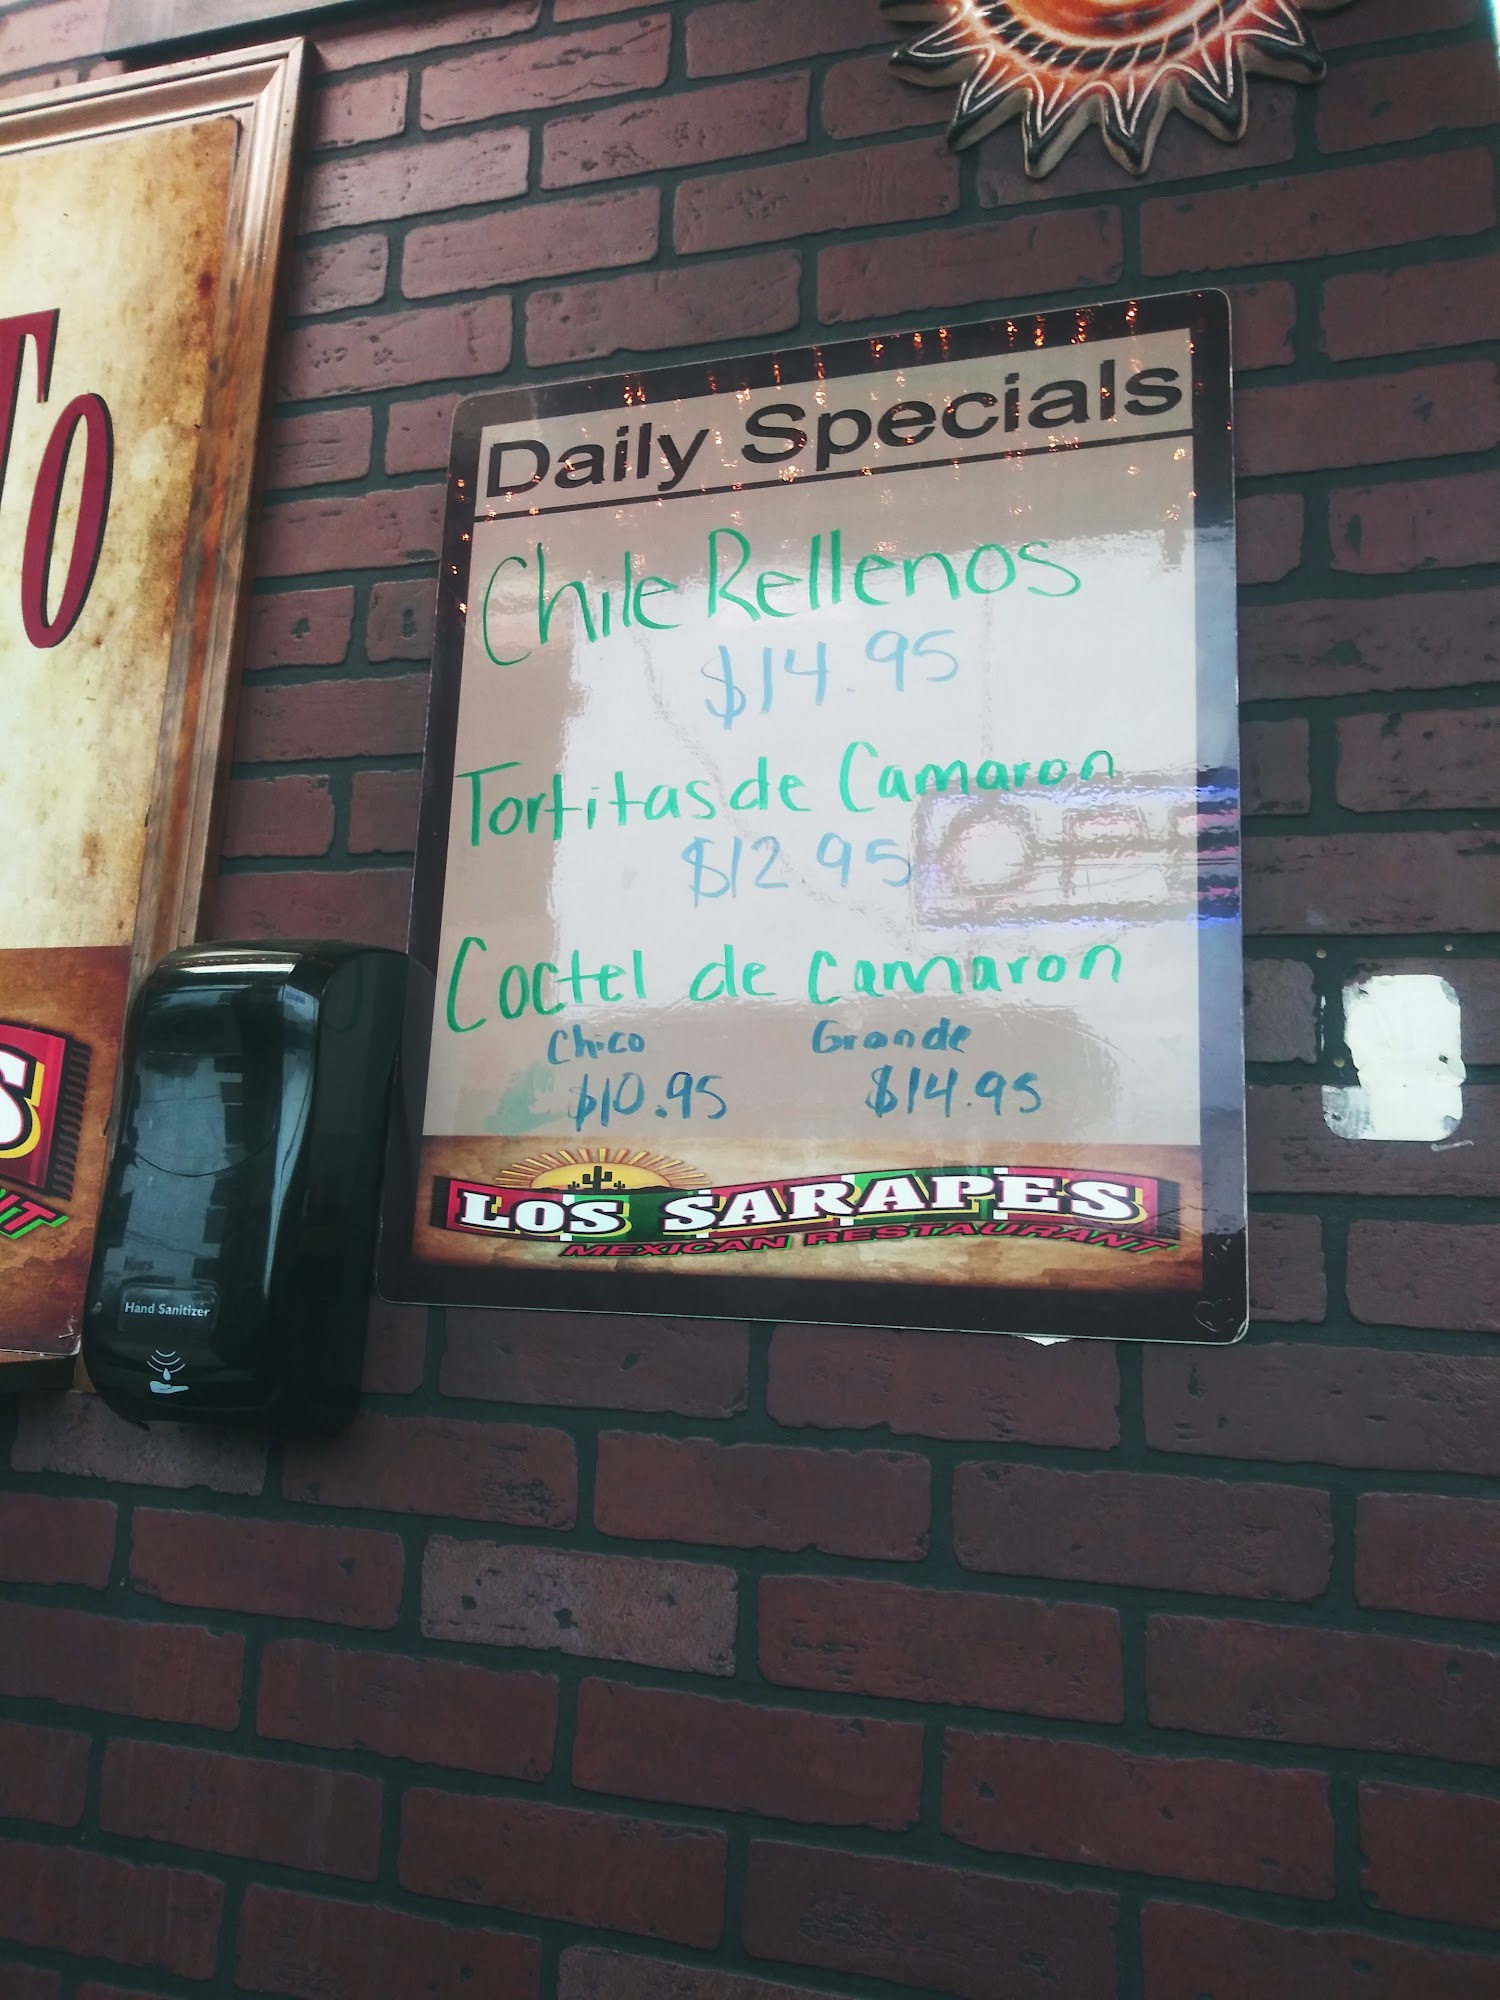 To
Daily Specials
Chile Rellenos
$14.95
Tortitas de Camaron
$12.95
Coctel de camaron
Chico Grande
$10.95 $14.95
LOS SARAPES
MEXICAN RESTAURANT
Hand Sanitizer